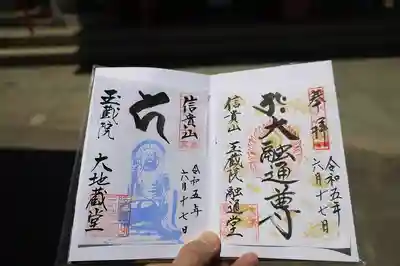 奉拝
令和五年
六月十七日
大融通尊
信貴山
玉蔵院
融通堂
信貴山
令和五年
六月十七日
玉蔵院
大地蔵堂